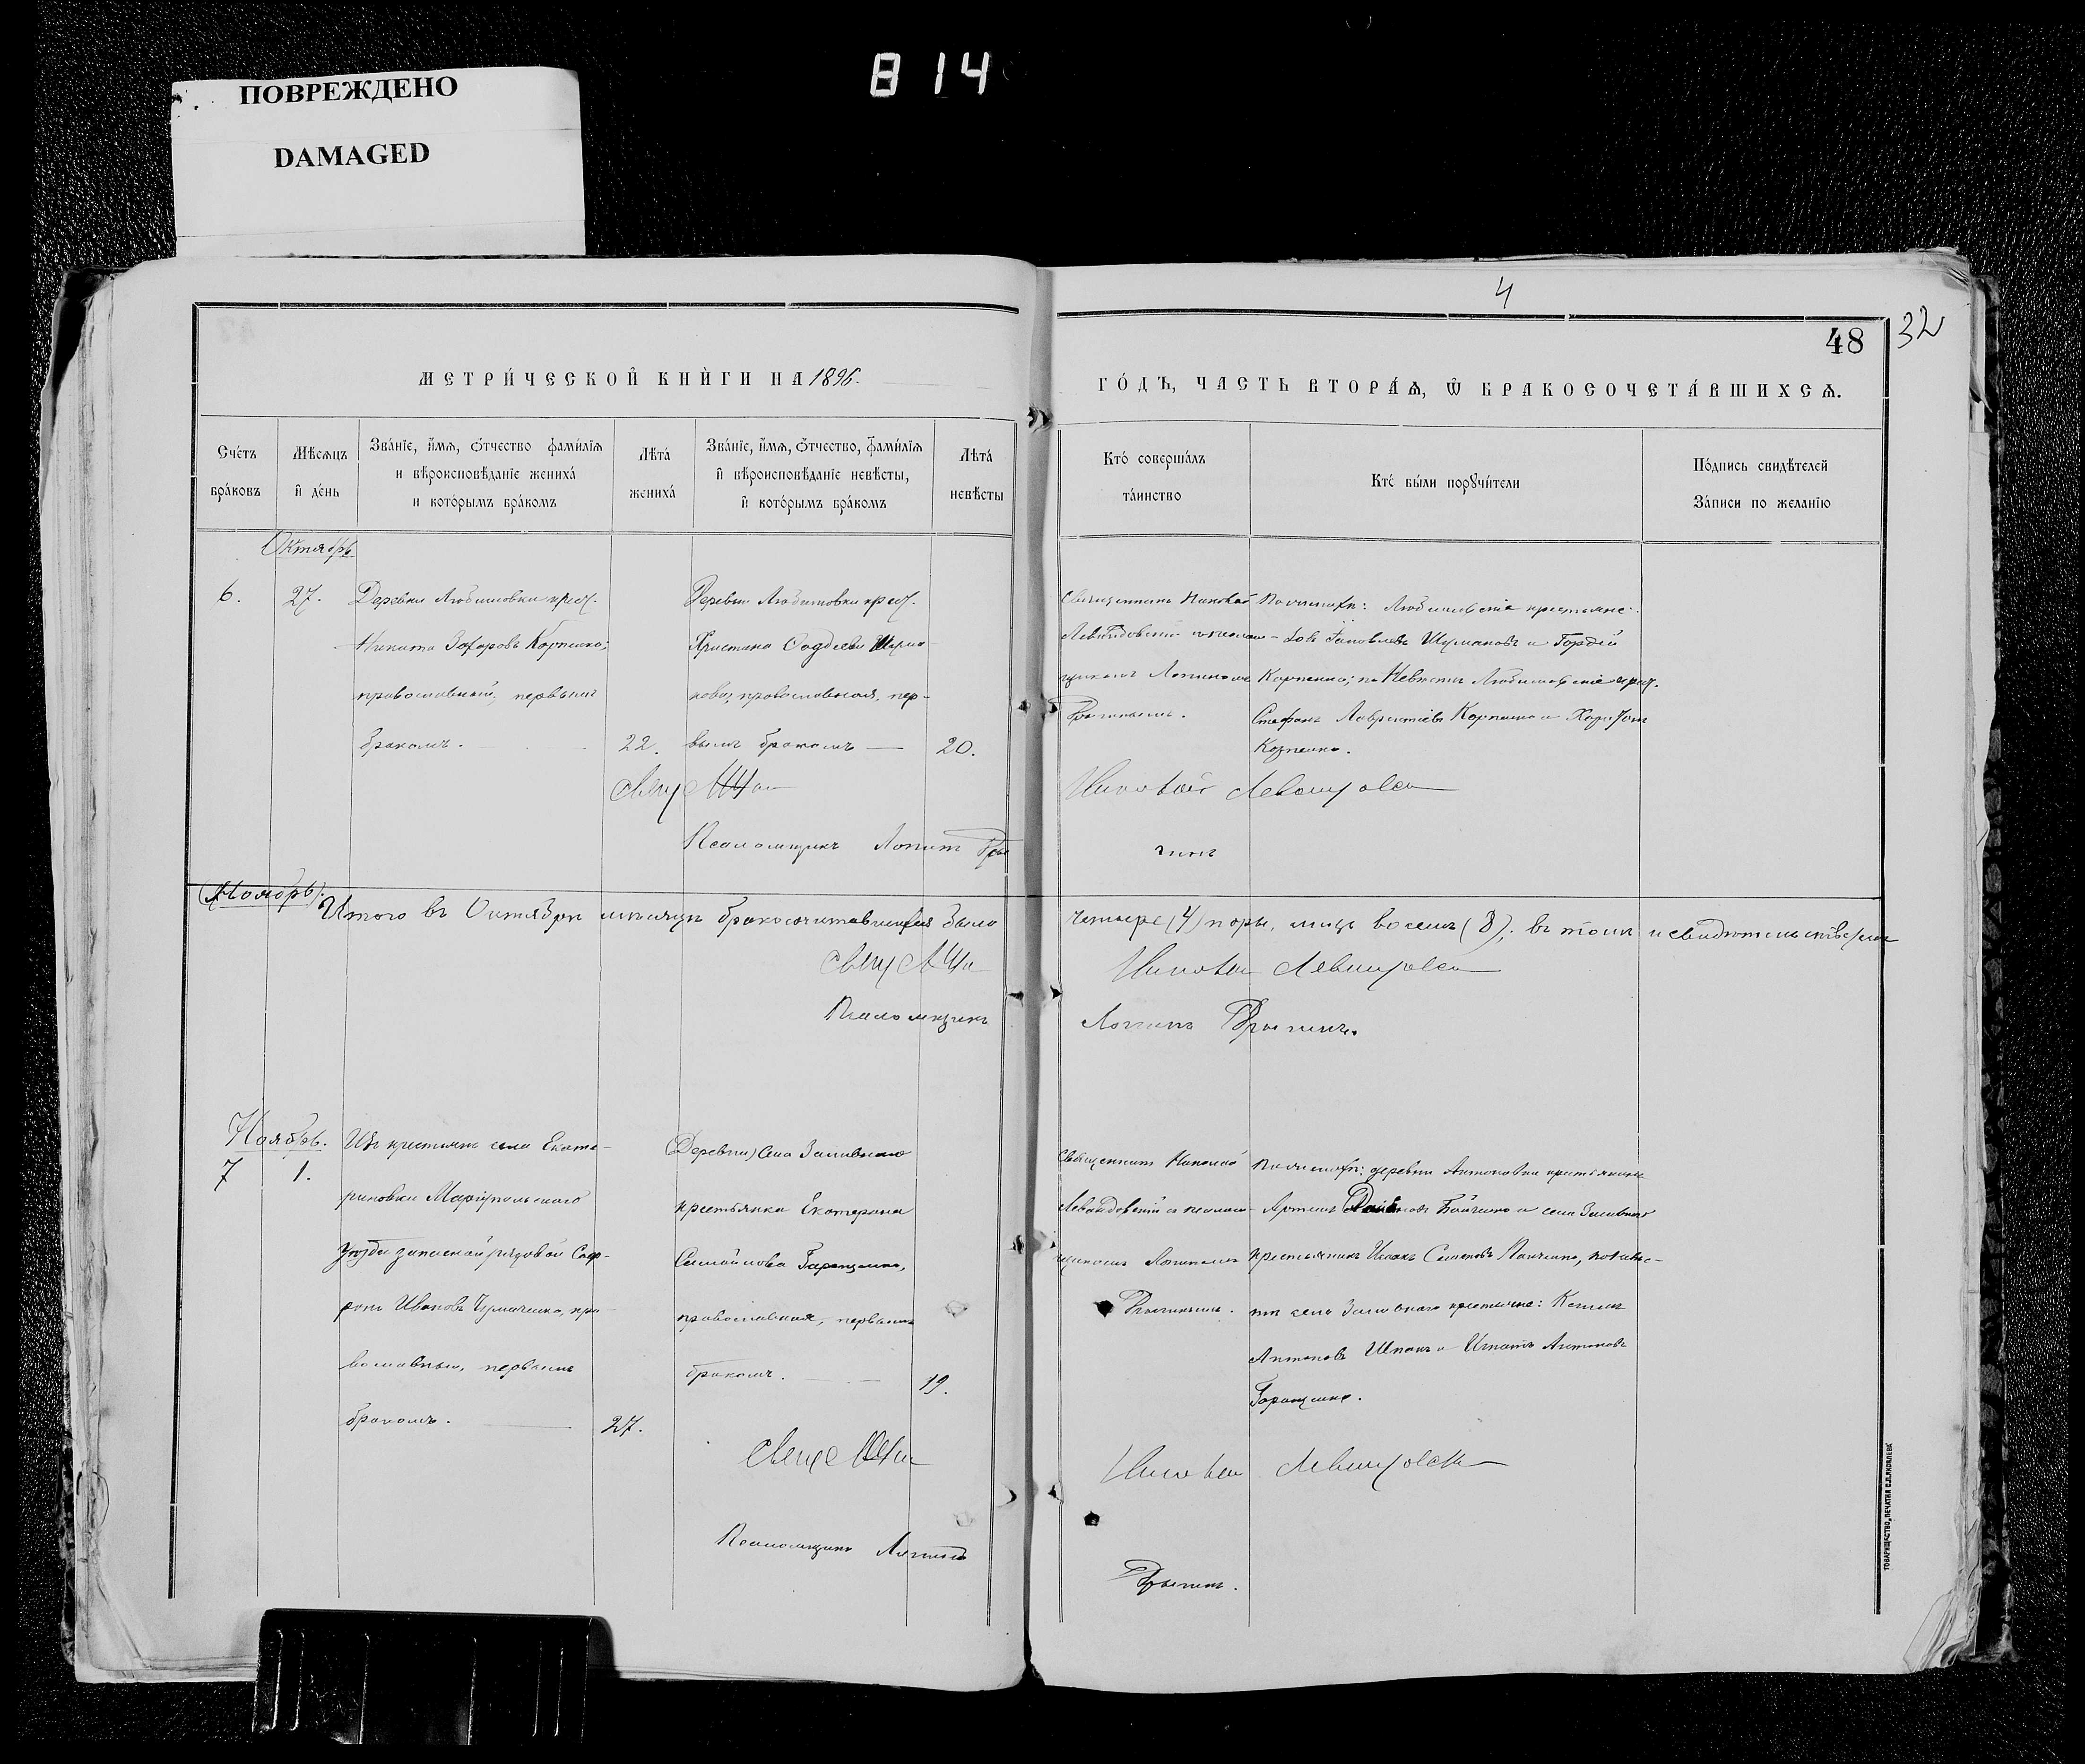 814
ПОВРЕЖДЕНО
DAMAGED
4
48
32
МЕТРИ́ЧЕСКОЙ КНИ́ГИ НА 1896.
ГО́ДЪ, ЧАСТЬ ВТОРА́Ѧ, Ѿ БРАКОСОЧЕТА́ВШИХСѦ.
Сче́тъ бра́ковъ
Мѣ́сѧцъ и҆ де́нь
Зва́нїе, и҆́мѧ, ѻ҆́тчество фамилїѧ
и вѣроисповѣ́данїе жениха́
и кото́рымъ бра́комъ
Лѣта́ жениха́
Зва́нїе, и҆́мѧ, ѻ҆́тчество, фамилїѧ
и҆ вѣроисповѣ́данїе невѣ́сты,
и҆ кото́рымъ бра́комъ
Лѣта́ невѣ́сты
Кто́ соверша́лъ та́инство
Кто́ бы́ли порꙋчи́тели
По́дпись свидѣ́телей
За́писи по жела́нїю
Октябрь
6.
27.
Деревни Любимовки крест.
Никита Захаровъ Корпенко;
православный, первымъ
бракомъ.
22.
Деревни Любимовки крест.
Христина
нова, православная, пер-
вымъ бракомъ
20.
Священникъ Николай
Левандовскій съ псалом-
щикомъ
По женихѣ: Любимовскіе крестьяне
Шумаковъ и Гордій
Корпенко; по невѣстѣ Любимовскіе крест.
Стефанъ Лаврентіевъ Корпенко и Харитонъ
Корпенко.
Свящ
Николай Левандовск
Псаломщикъ
(Ноябрь)
Итого въ Октябрѣ мѣсяцѣ бракосочитавшихся было
четыре (4) пары, лицъ восемь (8); въ томъ и свидѣтельствуемъ
Свящ
Николай Левандовск
Псаломщикъ
Ноябрь.
7
1.
Изъ крестьянъ села Екате-
риновки Маріупольскаго
уѣзда запасной рядовой Соф-
ронъ Ивановъ Чумаченко, пра-
вославный, первымъ
бракомъ.
27.
(Деревни) села Заливнаго
крестьянка Екатерина
Самойлова Гаращенко,
православная, первымъ
бракомъ.
19.
Священникъ Николай
Левандовскій съ псалом-
щикомъ
По женихѣ: деревни Антоновки крестьянинъ
Артемъ Бойченко и села Заливнаго
крестьянинъ Исаакъ Семеновъ Панченко, по невѣс-
тѣ села Заливнаго крестьяне:
Антоновъ Шпакъ и Игнатъ Антоновъ
Гаращенко.
Свящ
Николай Левандовск
Псаломщикъ
ТОВАРИЩЕСТВО „ПЕЧАТНЯ С.П.ЯКОВЛЕВА"